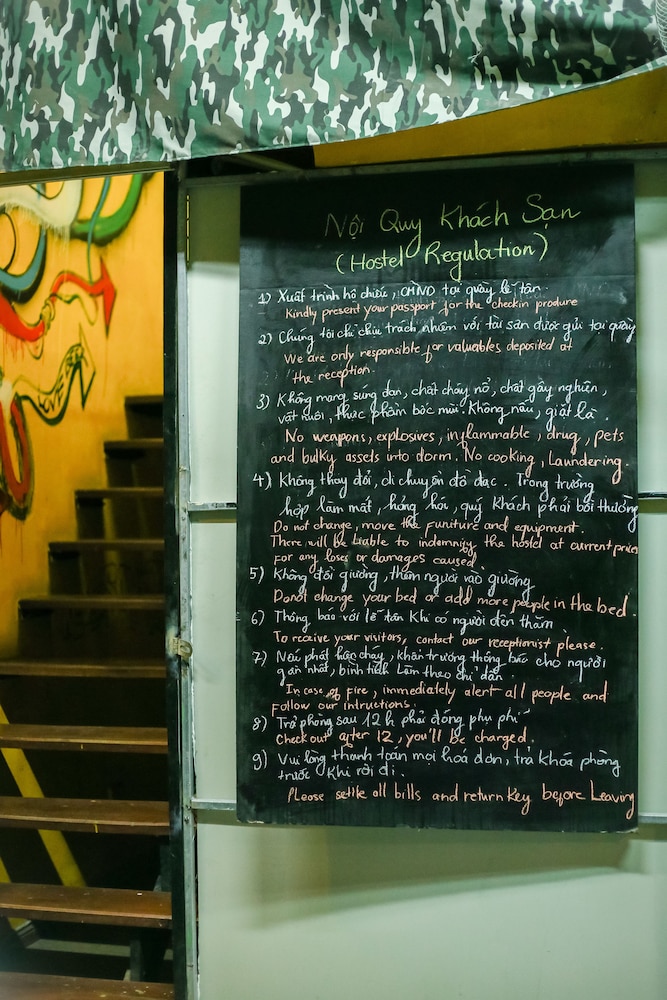 Nội Quy Khách Sạn
(Hostel Regulation)
1) Xuất trình hộ chiếu, CMND tại quầy lễ tân.
Kindly present your passport for the checkin produre
2) Chúng tôi chỉ chịu trách nhiệm với tài sản được gửi tại quầy
We are only responsible for valuables deposited at
the reception.
3) Không mang súng đạn, chất cháy nổ, chất gây nghiện,
vật nuôi, thực phẩm bốc mùi. Không nấu, giặt là.
No weapons, explosives, inflammable, drug, pets
and bulky assets into dorm. No cooking, Laundering.
4) Không thay đổi, di chuyển đồ đạc. Trong trường
hợp làm mất, hỏng hóc, quý khách phải bồi thường
Do not change, move the Funiture and equipment.
There will be Liable to indemnify the hostel at current prices
For any loses or damages caused
5) Không đổi giường, thêm người vào giường
Donot change your bed or add more people in the bed.
6) Thông báo với lễ tân khi có người đến thăm
To receive your visitors, contact our receptionist please.
7) Nếu phát hiện cháy, khẩn trương thông báo cho người
gần nhất, bình tĩnh làm theo chỉ dẫn.
In case of Fire, immediately alert all people and
Follow our intructions.
8) Trả phòng sau 12h phải đóng phụ phí
Check out after 12, you'll be charged.
9) Vui lòng thanh toán mọi hoá đơn, trả khóa phòng
trước khi rời đi.
Please settle all bills and return Key before Leaving